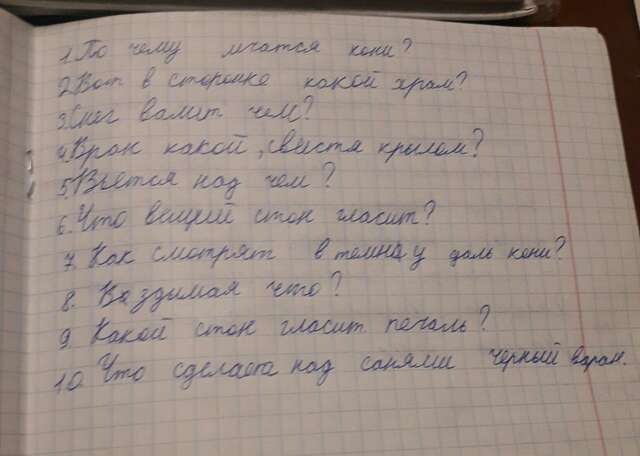 1. По чему мчатся кони?
2. Вот в сторонке какой храм?
3. Снег валит чем?
4. Вран какой, свистя крылом?
5. Вьется над чем?
6. Что вещий стон гласит?
7. Как смотрят в темну у даль кони?
8. Воздимая что?
9. Какой стон гласит печаль?
10. Что сделает над санями черный варан.